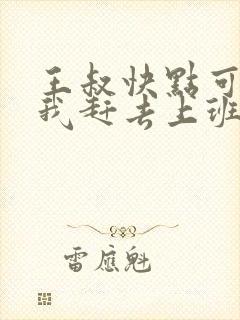 王叔快點可
我赶去上班
雷應魁